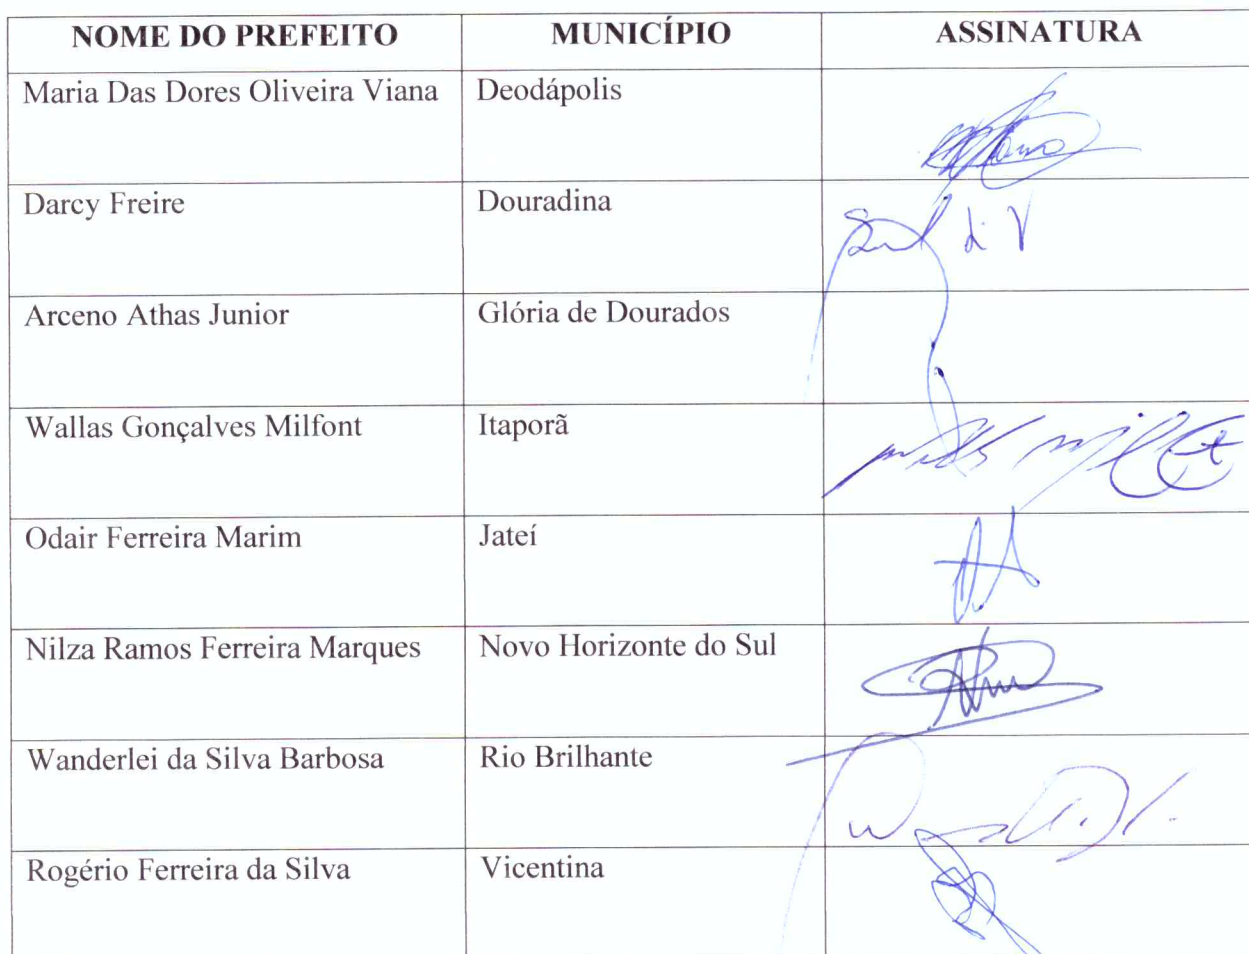 NOME DO PREFEITO MUNICÍPIO ASSINATURA
Maria Das Dores Oliveira Viana Deodápolis
Darcy Freire Douradina
Arceno Athas Junior Glória de Dourados
Wallas Gonçalves Milfont Itaporã
Odair Ferreira Marim Jateí
Nilza Ramos Ferreira Marques Novo Horizonte do Sul
Wanderlei da Silva Barbosa Rio Brilhante
Rogério Ferreira da Silva Vicentina